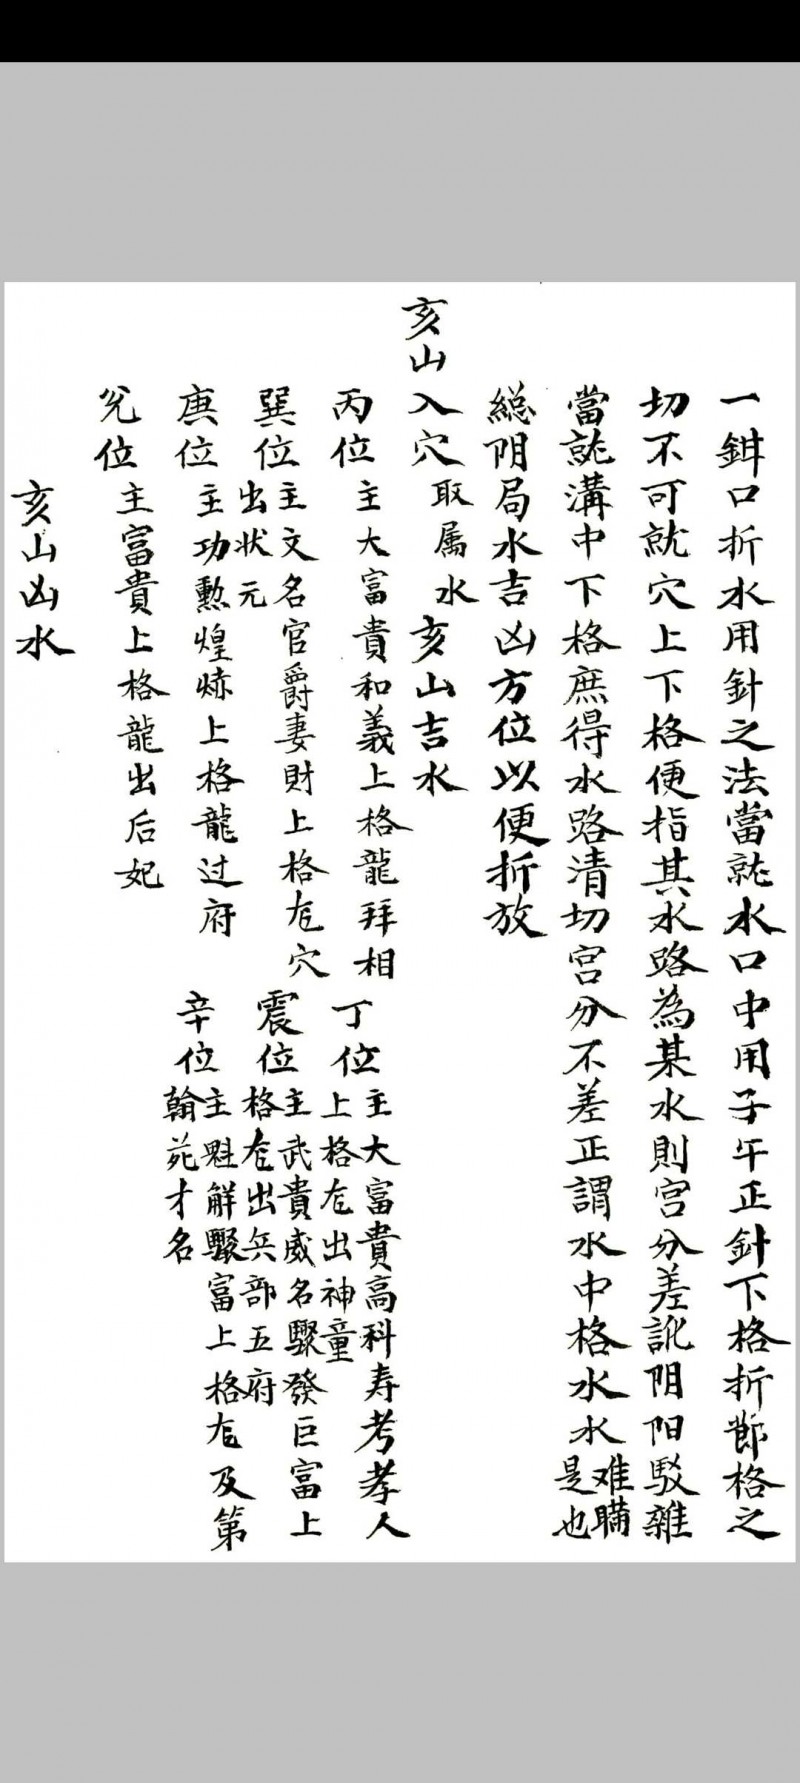 一鉡口折水用針之法當就水口中用子午正針下格折節格之
切不可就穴上下格便指其水路為某水則宫分差訛阴阳駁雜
當就溝中下格庶得水路清切宫分不差正謂水中格水水难瞞是也
総阴局水吉凶方位以便折放
亥山入穴取属水 亥山吉水
丙位主大富貴和義上格龍拜相
丁位主大富貴高科寿考孝人上格龙出神童
巽位主文名官爵妻財上格龙穴出状元
震位主武貴威名驟發巨富上格龙出兵部五府
庚位主功勲煌煉上格龍过府
辛位主魁解驟富上格龙及第翰苑才名
兑位主富貴上格龍出后妃
亥山凶水